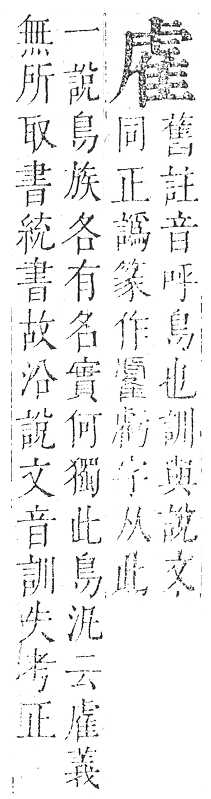 雐
舊註音呼鳥也訓與說文
同正譌篆作虧字从此
一說鳥族各有名實何獨此鳥汎云雐義
無所取書統書故沿說文音訓失考正